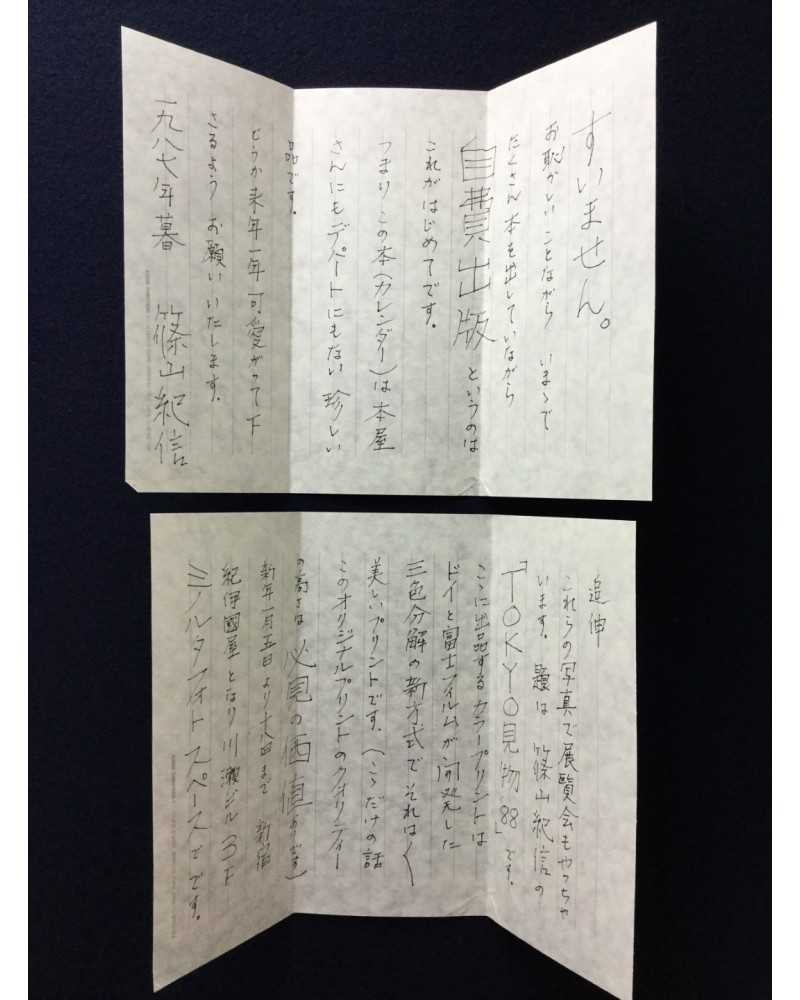 すいません。
お恥かしいことながら いまゝで
たくさん本を出していながら
自費出版 というのは
これがはじめてです。
つまりこの本(カレンダー)は本屋
さんにもデパートにもない珍しい
品です。
どうか来年一年可愛がって下
さるよう お願いいたします。
一九八七年暮 篠山紀信
追伸
これらの写真で展覧会もやっちゃ
います。 題は 篠山紀信の
「TOKYO見物'88」です。
ここに出品するカラープリントは
ドイと富士フイルムが開発した
三色分解の新方式でそれは〱
美しいプリントです。(こゝだけの話
このオリジナルプリントのクオリティー
の高さは 必見の価値ありです)
新年一月五日より
まで 新宿
紀伊國屋となり川瀬ビル3F
ミノルタフォトスペースでです。